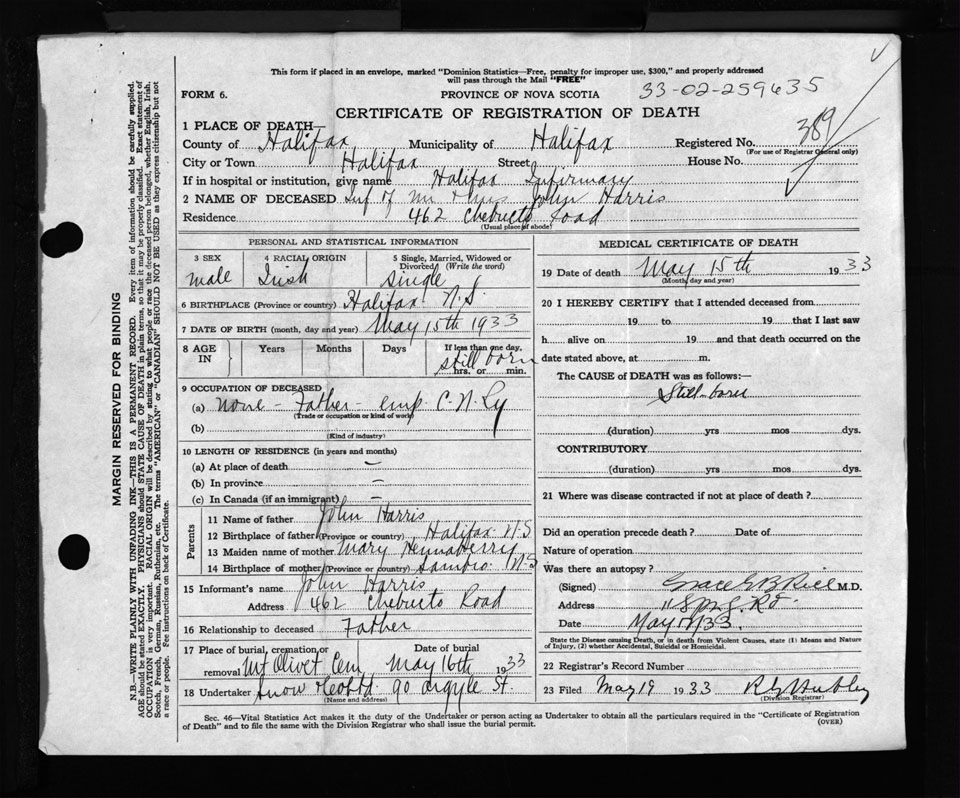 This form if placed in an envelope, marked "Dominion Statistics—Free, penalty for improper use, $300," and properly addressed
will pass through the Mail "FREE"
FORM 6.
PROVINCE OF NOVA SCOTIA
33-02-259635
CERTIFICATE OF REGISTRATION OF DEATH
1 PLACE OF DEATH—
County of Halifax Municipality of Halifax Registered No. 389
(For use of Registrar General only)
City or Town Halifax Street House No.
If in hospital or institution, give name Halifax Infirmary
2 NAME OF DECEASED Inf of Mr & Mrs John Harris
Residence 462 Chebucto Road
(Usual place of abode)
PERSONAL AND STATISTICAL INFORMATION
3 SEX 4 RACIAL ORIGIN 5 Single, Married, Widowed or
Divorced (Write the word)
male Irish Single
6 BIRTHPLACE (Province or country) Halifax N.S.
7 DATE OF BIRTH (month, day and year) May 15th 1933
8 AGE IN Years Months Days If less than one day,
still born
hrs. or min.
9 OCCUPATION OF DECEASED
(a) none - Father - emp. C. N. Ry
(Trade or occupation or kind of work)
(b)
(Kind of industry)
10 LENGTH OF RESIDENCE (in years and months)
(a) At place of death —
(b) In province —
(c) In Canada (if an immigrant) —
Parents
11 Name of father John Harris
12 Birthplace of father (Province or country) Halifax N.S
13 Maiden name of mother Mary Hennaberry
14 Birthplace of mother (Province or country) Sambro N.S
15 Informant's name John Harris
Address 462 Chebucto Road
16 Relationship to deceased Father
17 Place of burial, cremation or removal Mt Olivet Cem Date of burial May 16th 1933
18 Undertaker Snow & Co Ltd. 90 Argyle St.
(Name and address)
MEDICAL CERTIFICATE OF DEATH
19 Date of death May 15th 1933
(Month, day and year)
20 I HEREBY CERTIFY that I attended deceased from
19 to 19 that I last saw
h alive on 19 and that death occurred on the
date stated above, at m.
The CAUSE of DEATH was as follows:—
Still-born
(duration) yrs mos dys.
CONTRIBUTORY
(duration) yrs mos dys.
21 Where was disease contracted if not at place of death?
Did an operation precede death? Date of
Nature of operation
Was there an autopsy?
(Signed) Grace E B Rice M.D.
Address
Date May 33
State the Disease causing Death, or in death from Violent Causes, state (1) Means and Nature
of Injury, (2) whether Accidental, Suicidal or Homicidal.
22 Registrar's Record Number
23 Filed May 19 1933
(Division Registrar)
Sec. 46—Vital Statistics Act makes it the duty of the Undertaker or person acting as Undertaker to obtain all the particulars required in the "Certificate of Registration
of Death" and to file the same with the Division Registrar who shall issue the burial permit.
(OVER)
MARGIN RESERVED FOR BINDING
N.B.—WRITE PLAINLY WITH UNFADING INK—THIS IS A PERMANENT RECORD. Every item of information should be carefully supplied.
AGE should be stated EXACTLY. PHYSICIANS should STATE CAUSE OF DEATH in plain terms, so that it may be properly classified. Exact statement of
OCCUPATION is very important. RACIAL ORIGIN will be described by stating to what people or race the deceased person belonged, whether English, Irish,
Scotch, French, German, Russian, Ruthenian, etc. The terms "AMERICAN" or "CANADIAN" SHOULD NOT BE USED as they express citizenship but not
a race or people. See instructions on back of Certificate.